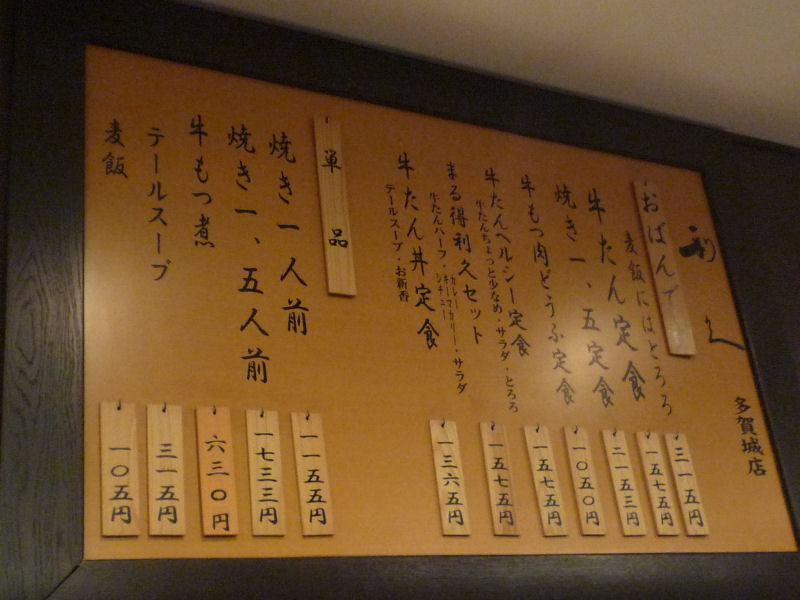 利久
多賀城店
おばんで
麦飯にはとろろ
三一五円
牛たん定食
一五七五円
焼き一、五定食
三一五三円
牛もつ肉どうふ定食
一〇五〇円
牛たんヘルシー定食
牛たんちょっと少なめ・サラダ・とろろ
一五七五円
まる得利久セット
牛たんハーフ・
カレー
キーマカリー・サラダ
シチュー
一五七五円
牛たん丼定食
テールスープ・お新香
一三六五円
単品
焼き一人前
一一五五円
焼き一、五人前
一七三三円
牛もつ煮
六三〇円
テールスープ
三一五円
麦飯
一〇五円